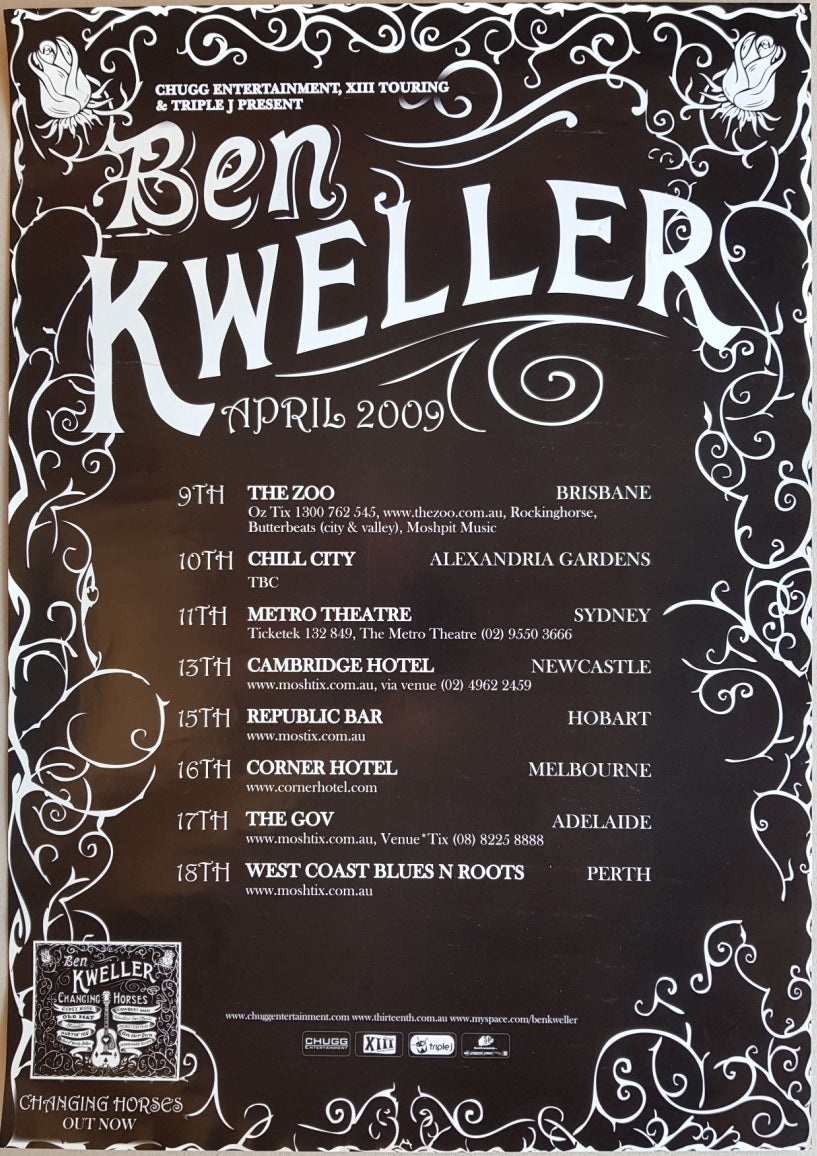 CHUGG ENTERTAINMENT, XIII TOURING
& TRIPLE J PRESENT
Ben
KWELLER
APRIL 2009
9TH THE ZOO BRISBANE
Oz Tix 1300 762 545, www.thezoo.com.au, Rockinghorse,
Butterbeats (city & valley), Moshpit Music
10TH CHILL CITY ALEXANDRIA GARDENS
TBC
11TH METRO THEATRE SYDNEY
Ticketek 132 849, The Metro Theatre (02) 9550 3666
13TH CAMBRIDGE HOTEL NEWCASTLE
www.moshtix.com.au, via venue (02) 4962 2459
15TH REPUBLIC BAR HOBART
www.mostix.com.au
16TH CORNER HOTEL MELBOURNE
www.cornerhotel.com
17TH THE GOV ADELAIDE
www.moshtix.com.au, Venue*Tix (08) 8225 8888
18TH WEST COAST BLUES N ROOTS PERTH
www.moshtix.com.au
Ben
KWELLER
CHANGING HORSES
GYPSY ROSE
OLD HAT
CHANGING HORSES
OUT NOW
www.chuggentertainment.com www.thirteenth.com.au www.myspace.com/benkweller
CHUGG
ENTERTAINMENT
XIII
triple j